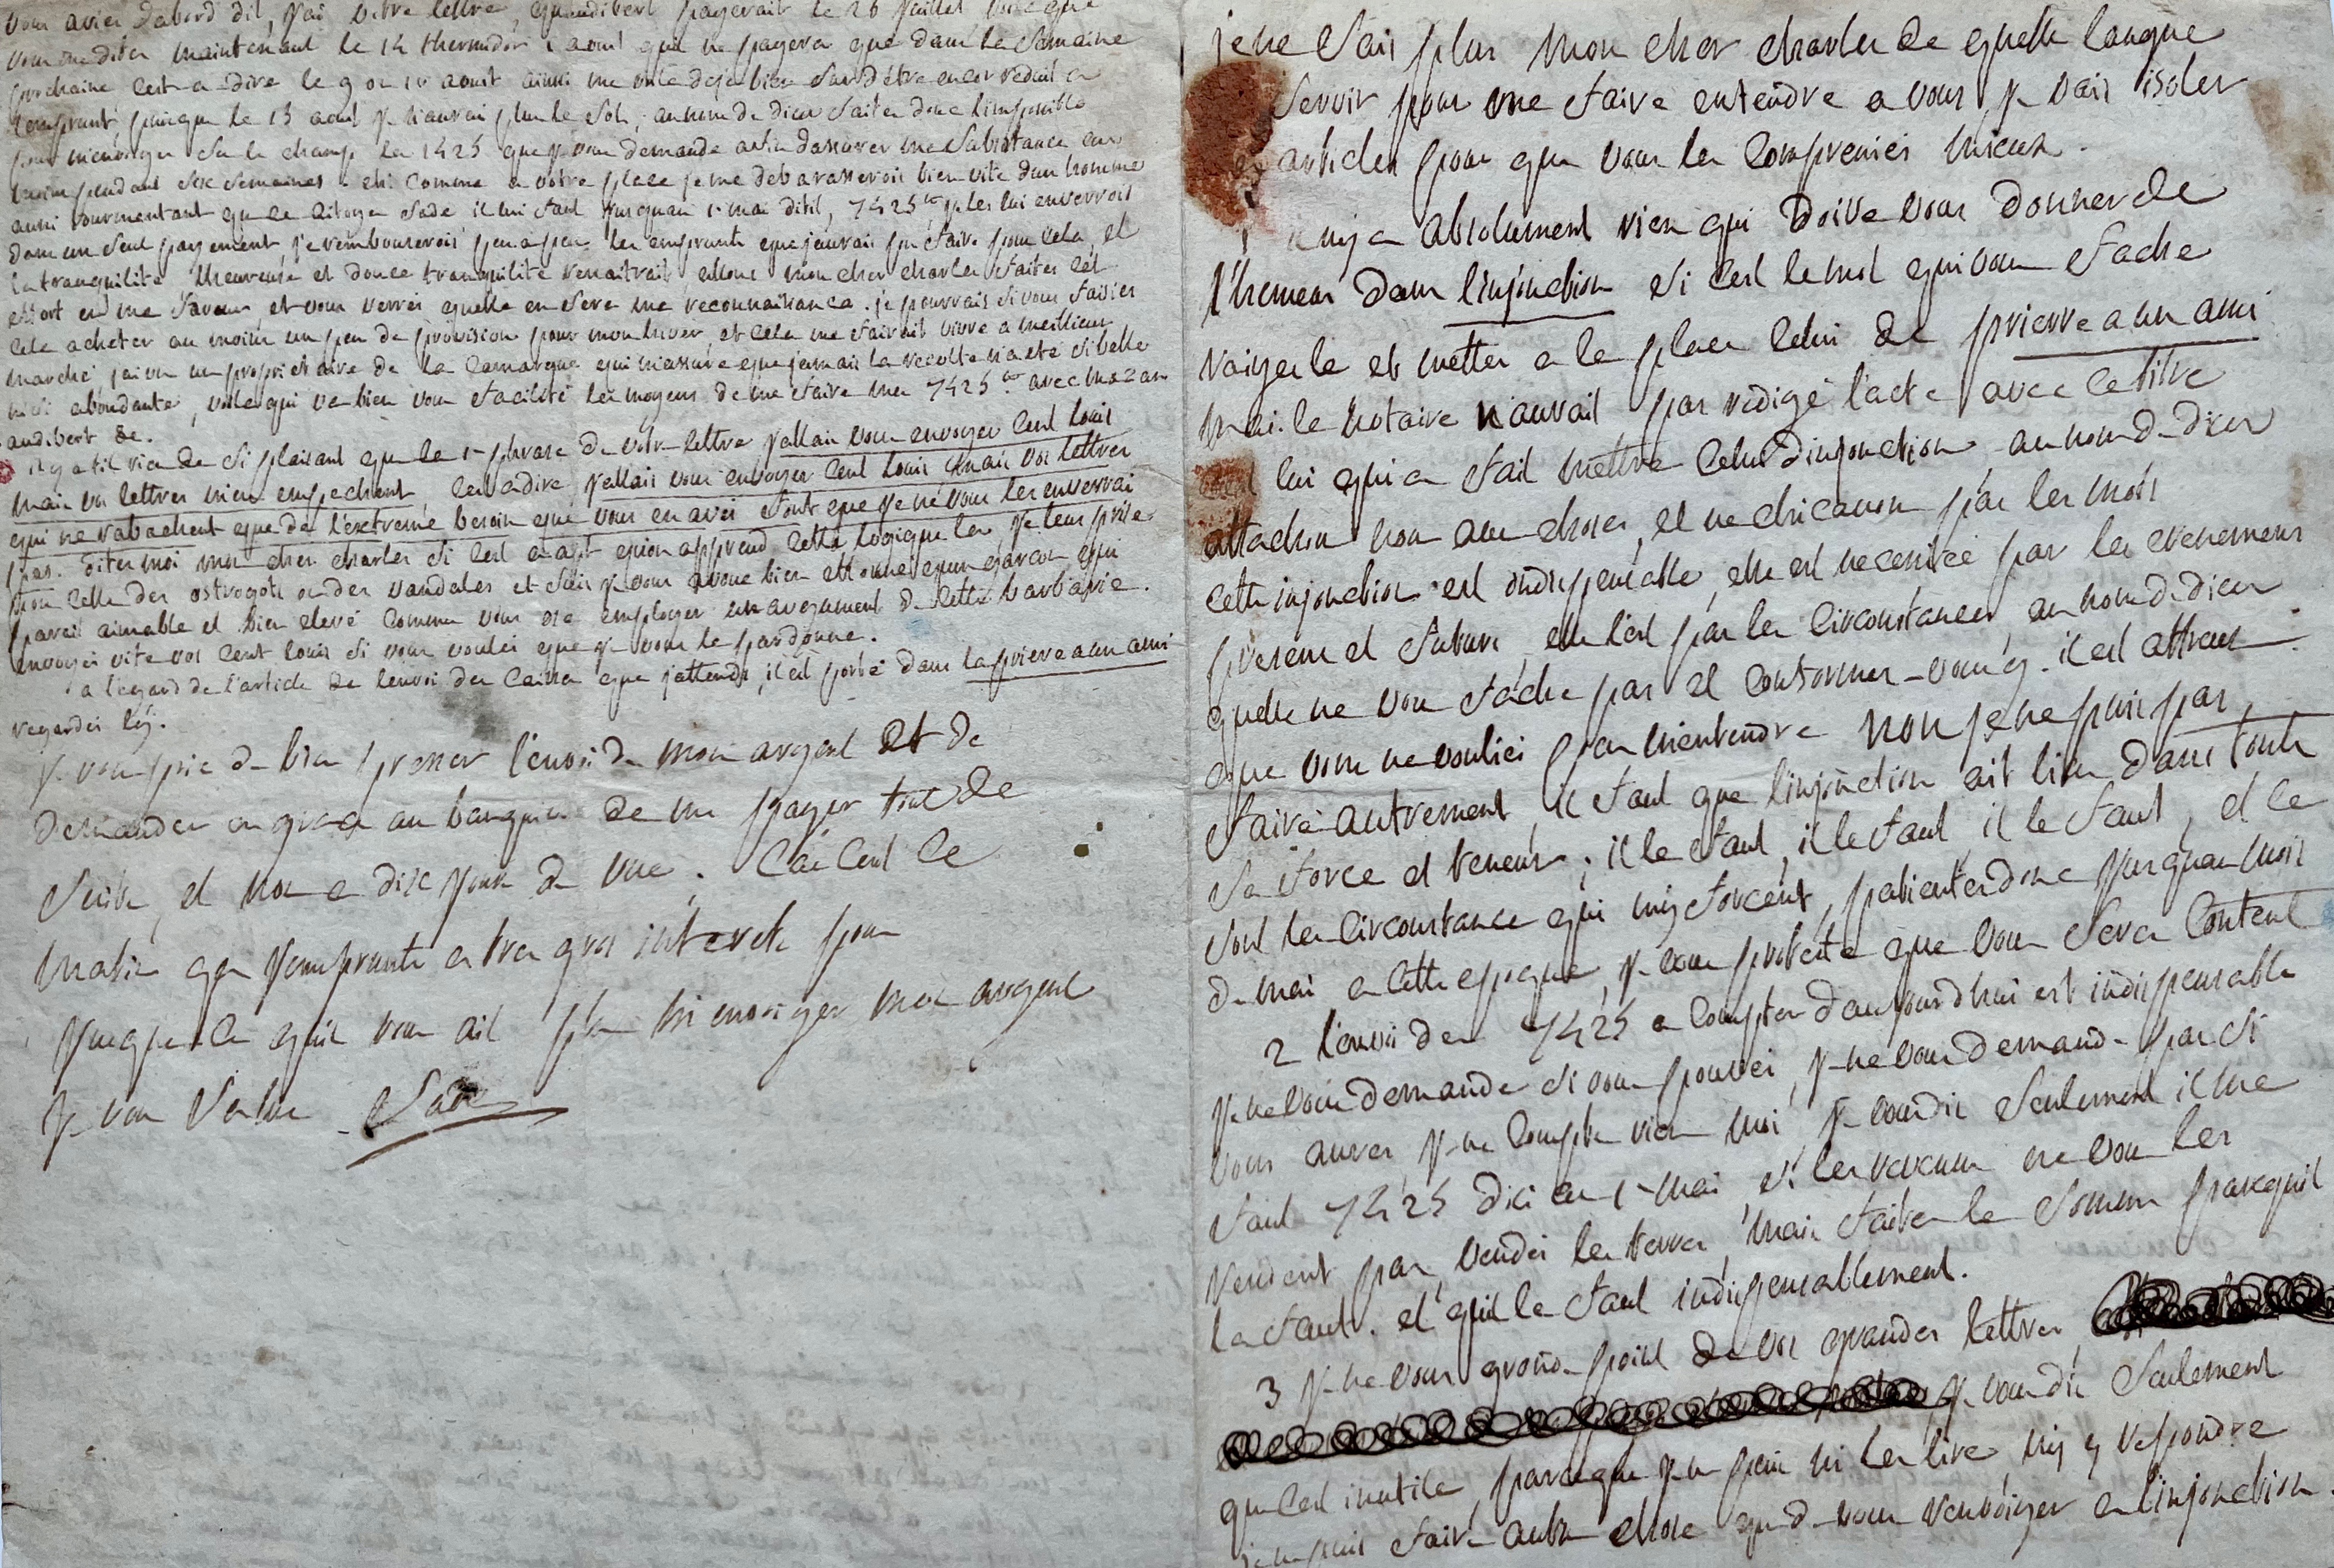 je ne sais plus mon cher charles de quelle langue
servir pour me faire entendre a vous, je vais isoler
articles pour que vous les compreniés mieux.
1 il ny a absolument rien qui doive vous donner de
l'humeur dans l'injonction si c'est le mot qui vous fache
raiyez le et mettez a la place celui de prierre a un ami
mais le notaire n'auroit pas redigé l'acte avec ce titre
lui qui a fait mettre celui d'injonction au nom de dieu
attachons nous aux choses, et ne chicanons pas les mots
cette injonction est indispensable, elle est necessitée par les evenemens
presens et futurs, elle l'est par les circonstances, au nom de dieu
quelle ne vous fache pas et conformez-vous y. il est affreux
que vous ne vouliés pas m'entendre non je ne puis pas
faire autrement, il faut que l'injonction ait lieu dans toute
sa force et teneur; il le faut, il le faut il le faut, et ce
sont les circonstances qui my forcent, patientez donc jusquau mois
de mai a cette epoque, je vous proteste que vous serez content
2 l'envoi des 7425 a compter d'aujourdhui est indispensable
je ne vous demande si vous pouvés, je ne vous demande pas si
vous aurez, je ne compte rien moi, je vous dis seulement il me
faut 7425 dici au 1er mai, si les revenus ne vous les
rendent pas, vendés les terres, mais faites la somme parcequil
la faut. et quil la faut indispensablement.
3 je ne vous gronde point de vos grandes lettres,
je vous dis seulement
que c'est inutile, parceque je ne puis ni les lire, ni y repondre
je ne puis faire autre chose que de vous renvoiyer a l'injonction.
vous aviez dabord dit, j'ai votre lettre, quaudibert payerait le 26 juillet voila que
vous me dites maintenant le 14 thermidor 1 aout quil ne payera que dans la semaine
prochaine cest a dire le 9 ou 10 aout ainsi me voila deja bien sur d'être encor reduit a
l'emprunt, puisque le 15 aout je n'aurai plus le sol, au nom de dieu faites donc l'impossible
pour m'envoyer sur le champ les 1425 que je vous demande afin dassurer ma subsistance au
moins pendant six semaines. eh! comme a votre place je me debarasserois bien vite d'un homme
aussi tourmentant que le citoyen sade il lui faut jusquau 1er mai dit il, 7425tt je les lui enverrois
dans un seul payement, je rembourserois peu a peu les emprunts que j'aurais pu faire pour cela, et
la tranquilité heureuse et douce tranquilité renaitrait. allons mon cher charles faites cet
effort en ma faveur, et vous verrés quelle en sera ma reconnaissance. je pourrais si vous faisiés
cela acheter au moins un peu de provision pour mon hiver, et cela me fairait vivre a meilleur
marché, j'ai vu un proprietaire de la Camargue qui m'assure que jamais la recolte n'a eté si belle
ni si abondante, voila qui va bien vous facilité les moyens de me faire mes 7425tt avec mes 2 ans
audibert &c.
il ny a til rien de si plaisant que la 1ere phrase de votre lettre, j'allais vous envoyer cent louis
mais vos lettres m'en empechent, cest a dire, j'allais vous envoyer cent louis mais vos lettres
qui ne rabachent que de l'extreme besoin que vous en avés font que je ne vous les enverrai
pas. dites moi mon cher charles si c'est a apt quon apprend cette logique la, je leur prise
moi celle des ostrogots ou des vandales et suis je vous avoue bien etonné quun garcon, qui
pareil aimable et bien elevé comme vous ose employer un argument de cette barbarie.
envoyés vite vos cent louis si vous voulés que je vous le pardonne.
a l'egard de l'article de l'envoi des caisses que j'attends, il est porté dans la prierre a un ami
regardés l'y.
je vous prie de bien presser l'envoi de mon argent et de
demander en grace au banquier de me payer tout de
suite, et non a dix jours de vue. car c'est ce
matin que j'emprunte a tres gros interets pour
jusqua ce quil vous ait plu m'envoiyer mon argent
je vous salue Sade